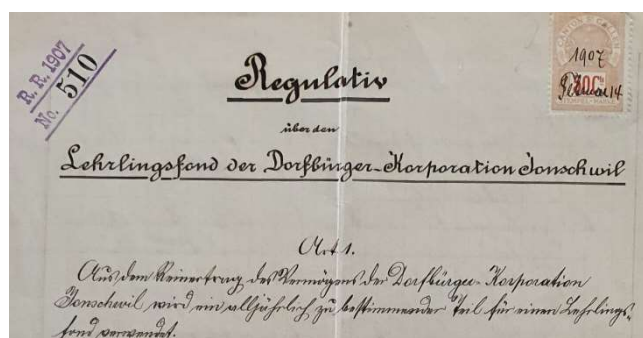 R. R. 1907
No. 510
KANTON ST. GALLEN
1907
30 Cts
Februar 14
STEMPEL-MARKE
Regulativ
über den
Lehrlingsfond der Dorfbürger-Korporation Jonschwil
Art 1.
Aus dem Reinertrag des Vermögens der Dorfbürger-Korporation
Jonschwil wird ein alljährlich zu bestimmender Teil für einen Lehrlings-
fond verwendet.